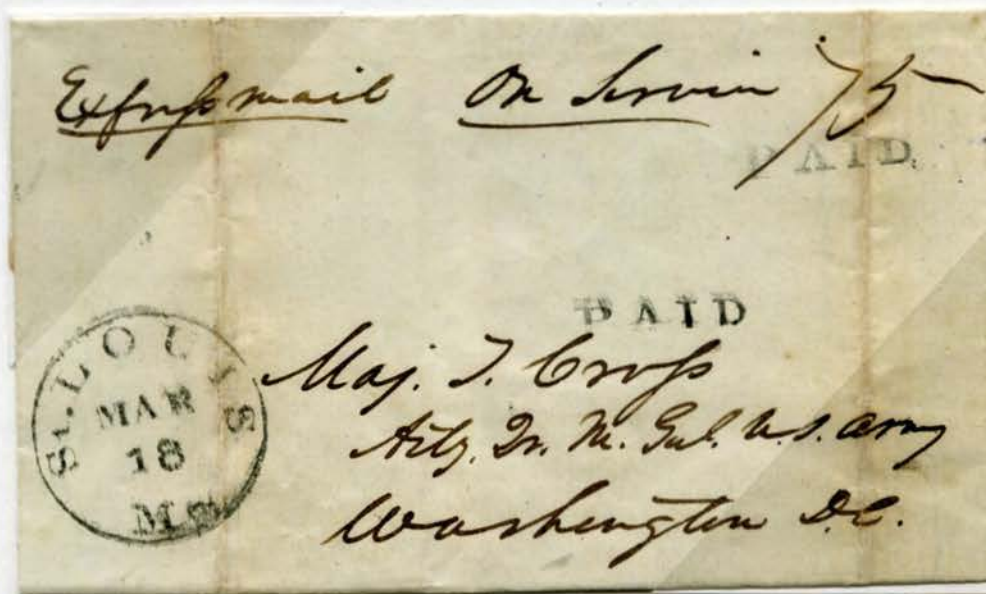 Express mail On Servicе 75
PAID
PAID
St. LOUIS
MAR
18
Mo
Maj. T. Cross
Actg. Qr. M. Genl. U.S. Army
Washington D.C.